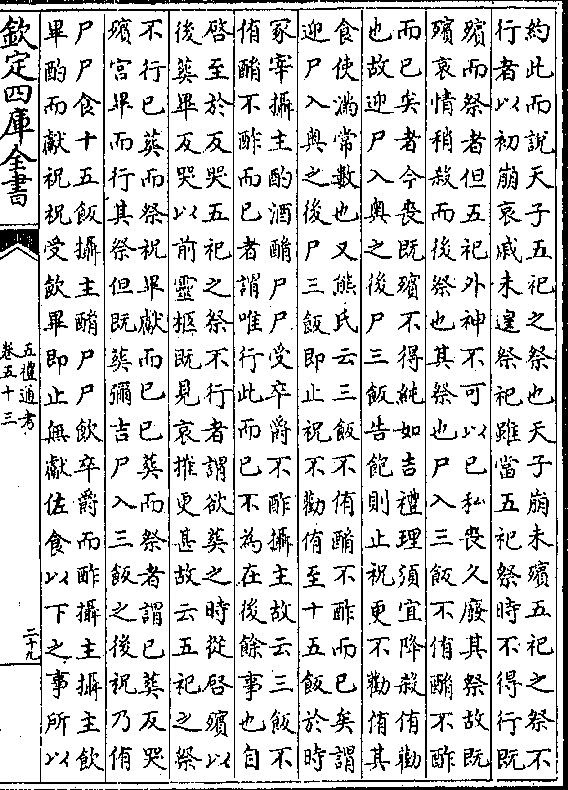 約此而說天子五祀之祭也天子崩未殯五祀之祭不
行者以初崩哀戚未遑祭祀雖當五祀祭時不得行既
殯而祭者但五祀外神不可以已私喪久廢其祭故既
殯哀情稍殺而後祭也其祭也尸入三飯不侑酳不酢
而已矣者今喪既殯不得純如吉禮理須宜降殺侑勸
也故迎尸入奥之後尸三飯告飽則止祝更不勸侑其
食使滿常數也又熊氏云三飯不侑酳不酢而已矣謂
迎尸入奥之後尸三飯即止祝不勸侑至十五飯於時
冢宰攝主酌酒酳尸尸受卒爵不酢攝主故云三飯不
侑酳不酢而已者謂唯行此而已不為在後餘事也自
啓至於反哭五祀之祭不行者謂欲葬之時從啓殯以
後葬畢反哭以前靈柩既見哀摧更甚故云五祀之祭
不行已葬而祭祝畢獻而已已葬而祭者謂已葬反哭
殯宫畢而行其祭但既葬彌吉尸入三飯之後祝乃侑
尸尸食十五飯攝主酳尸尸飲卒爵而酢攝主攝主飲
畢酌而獻祝祝受飲畢即止無獻佐食以下之事所以
欽定四庫全書
五禮通考
卷五十三
二十九